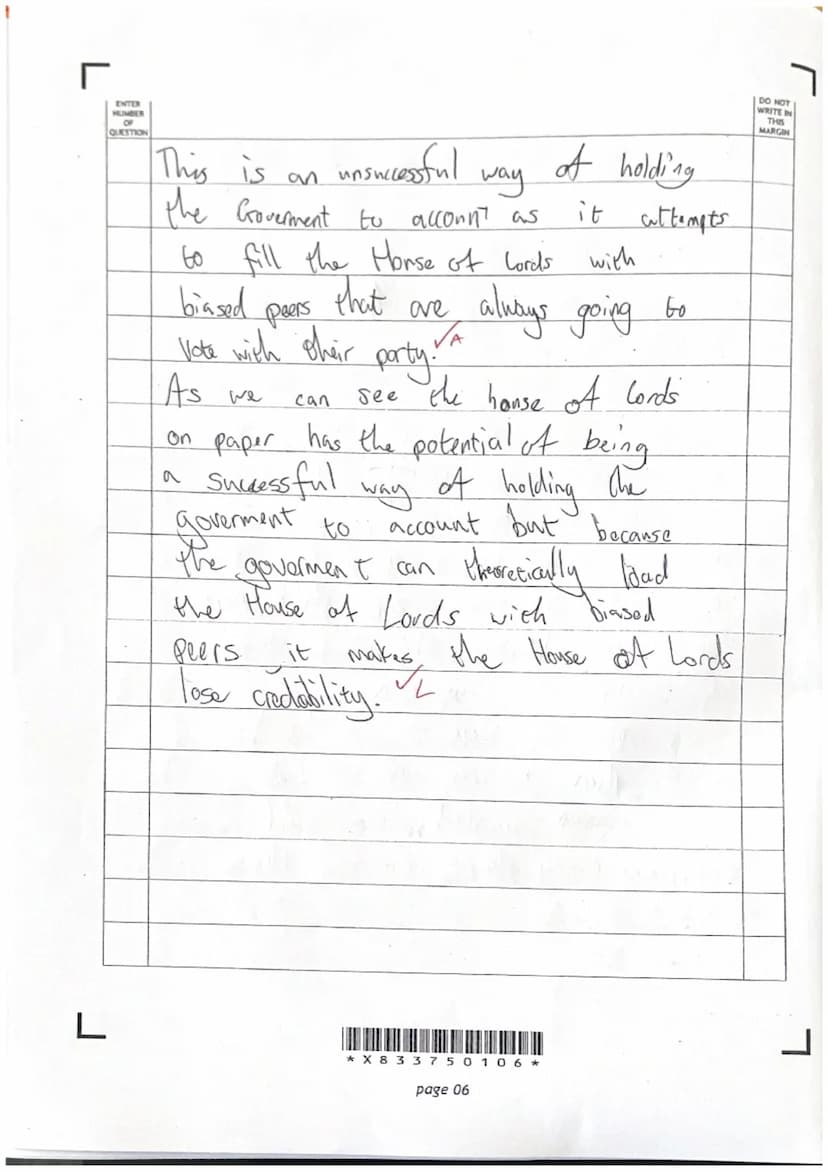 ENTER
NUMBER
OF
QUESTION
DO NOT
WRITE IN
THIS
MARGIN
This is an unsuccessful way of holding
the Goverment to account as it attempts
to fill the House of Lords with
biased peers that are always going to
Vote with their party. ✓A
As we can see the house of Lords
on paper has the potential of being
a successful way of holding the
goverment to account but because
the goverment can theoretically load
the House of Lords with biased
peers it makes the House of Lords
lose credability. ✓L
*X833750106*
page 06